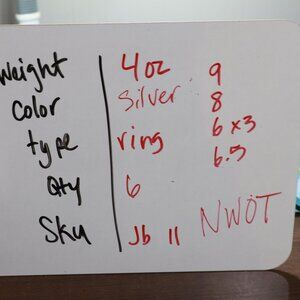 Weight 4oz 9
Color Silver 8
type ring 6 x3
6.5
Qty 6
Sku Jb 11 NWOT